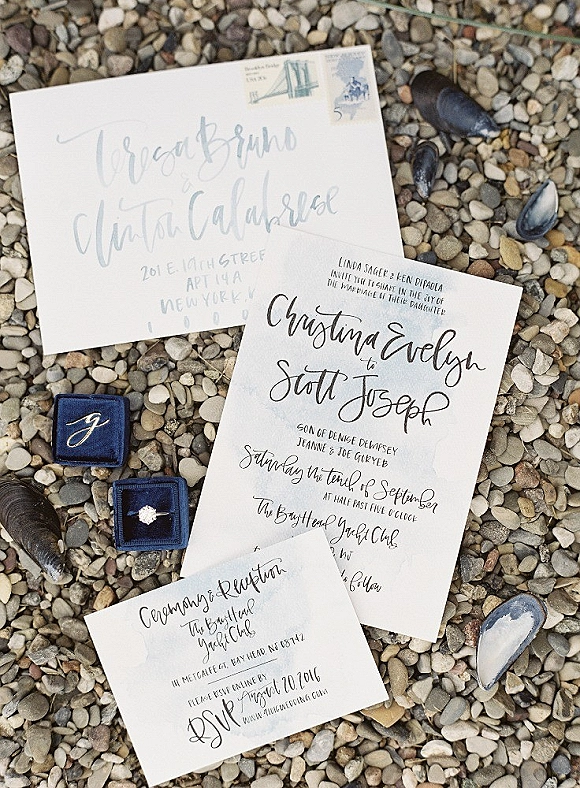 Brooklyn Bridge
USA 20c
5
Teresa Bruno
&
Clinton Calabrese
201 E. 19TH STREET
APT 14A
NEW YORK,
LINDA SAGER & KEN DIPAOLA
INVITE YOU TO SHARE IN THE JOY OF
THE MARRIAGE OF THEIR DAUGHTER
Christina Evelyn
to
Scott Joseph
SON OF DENISE DEMPSEY
JEANNE & JOE GERYEB
Saturday the tenth of September
AT HALF PAST FIVE O'CLOCK
The Bay Head Yacht Club
to follow
g
Ceremony & Reception
The Bay Head
Yacht Club
111 METCALFE ST. BAY HEAD NJ 08742
PLEASE RSVP ONLINE BY
August 20 2016
RSVP